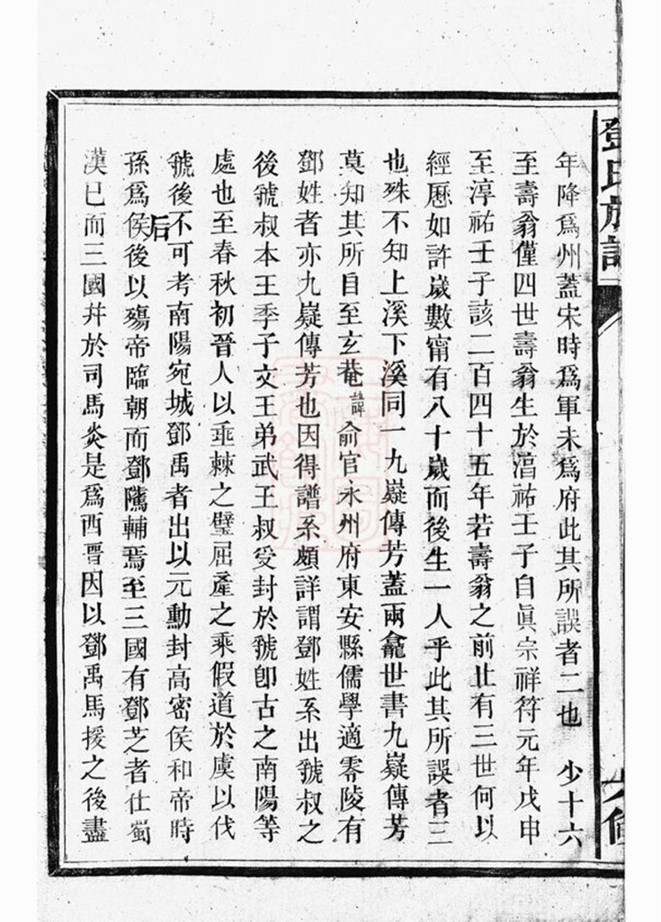 年降爲州蓋宋時爲軍未爲府此其所誤者二也　少十六
至壽翁僅四世壽翁生於淳祐壬子自眞宗祥符元年戊申
至淳祐壬子該二百四十五年若壽翁之前止有三世何以
經歷如許歲數甯有八十歲而後生一人乎此其所誤者三
也殊不知上溪下溪同一九嶷傳芳蓋兩龕世書九嶷傳芳
莫知其所自至玄菴諱俞官永州府東安縣儒學適零陵有
鄧姓者亦九嶷傳芳也因得譜系頗詳謂鄧姓系出虢叔之
後虢叔本王季子文王弟武王叔受封於虢卽古之南陽等
處也至春秋初晉人以垂棘之璧屈產之乘假道於虞以伐
虢後不可考南陽宛城鄧禹者出以元勳封高密侯和帝時
孫爲侯后後以殤帝臨朝而鄧騭輔焉至三國有鄧芝者仕蜀
漢已而三國幷於司馬炎是爲西晋因以鄧禹馬援之後盡
鄧氏族譜